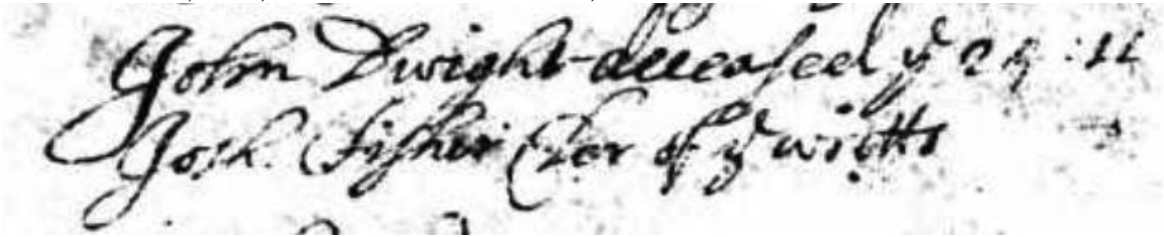 John Dwight deceased ye 24 : 11
Josh. Fisher Cler of ye writts